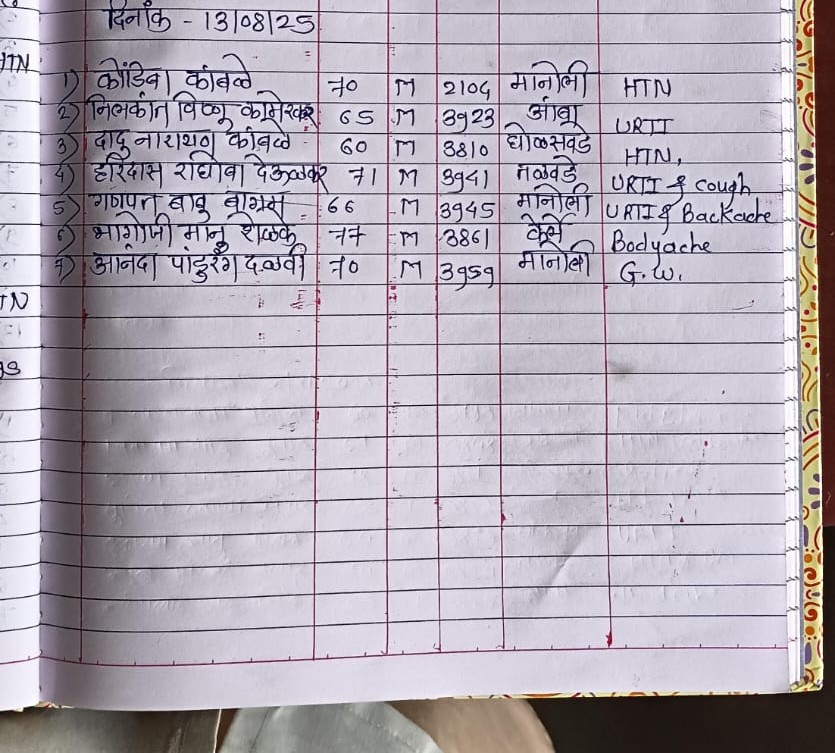 दिनांक - 13/08/25
HTN
1) कोंडिबा कांबळे 70 M 2104 मानोली HTN
2) निलकांत विष्णू कामेरकर 65 M 3923 आंबा URTI
3) दादु नारायण कांबळे 60 M 3810 घोळसवडे HTN,
4) हरिदास राघोबा देऊळकर 71 M 3941 तळवडे URTI & cough
5) गणपत बाबु 66 M 3945 मानोली URTI & Backache
6) भागोजी मानु शेळके 77 M 3861 केर्ले Bodyache
7) आनंदा पांडुरंग दळवी 70 M 3959 मानोली G.W.
TN